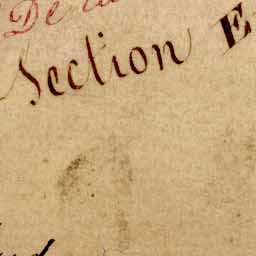 De la
Section E